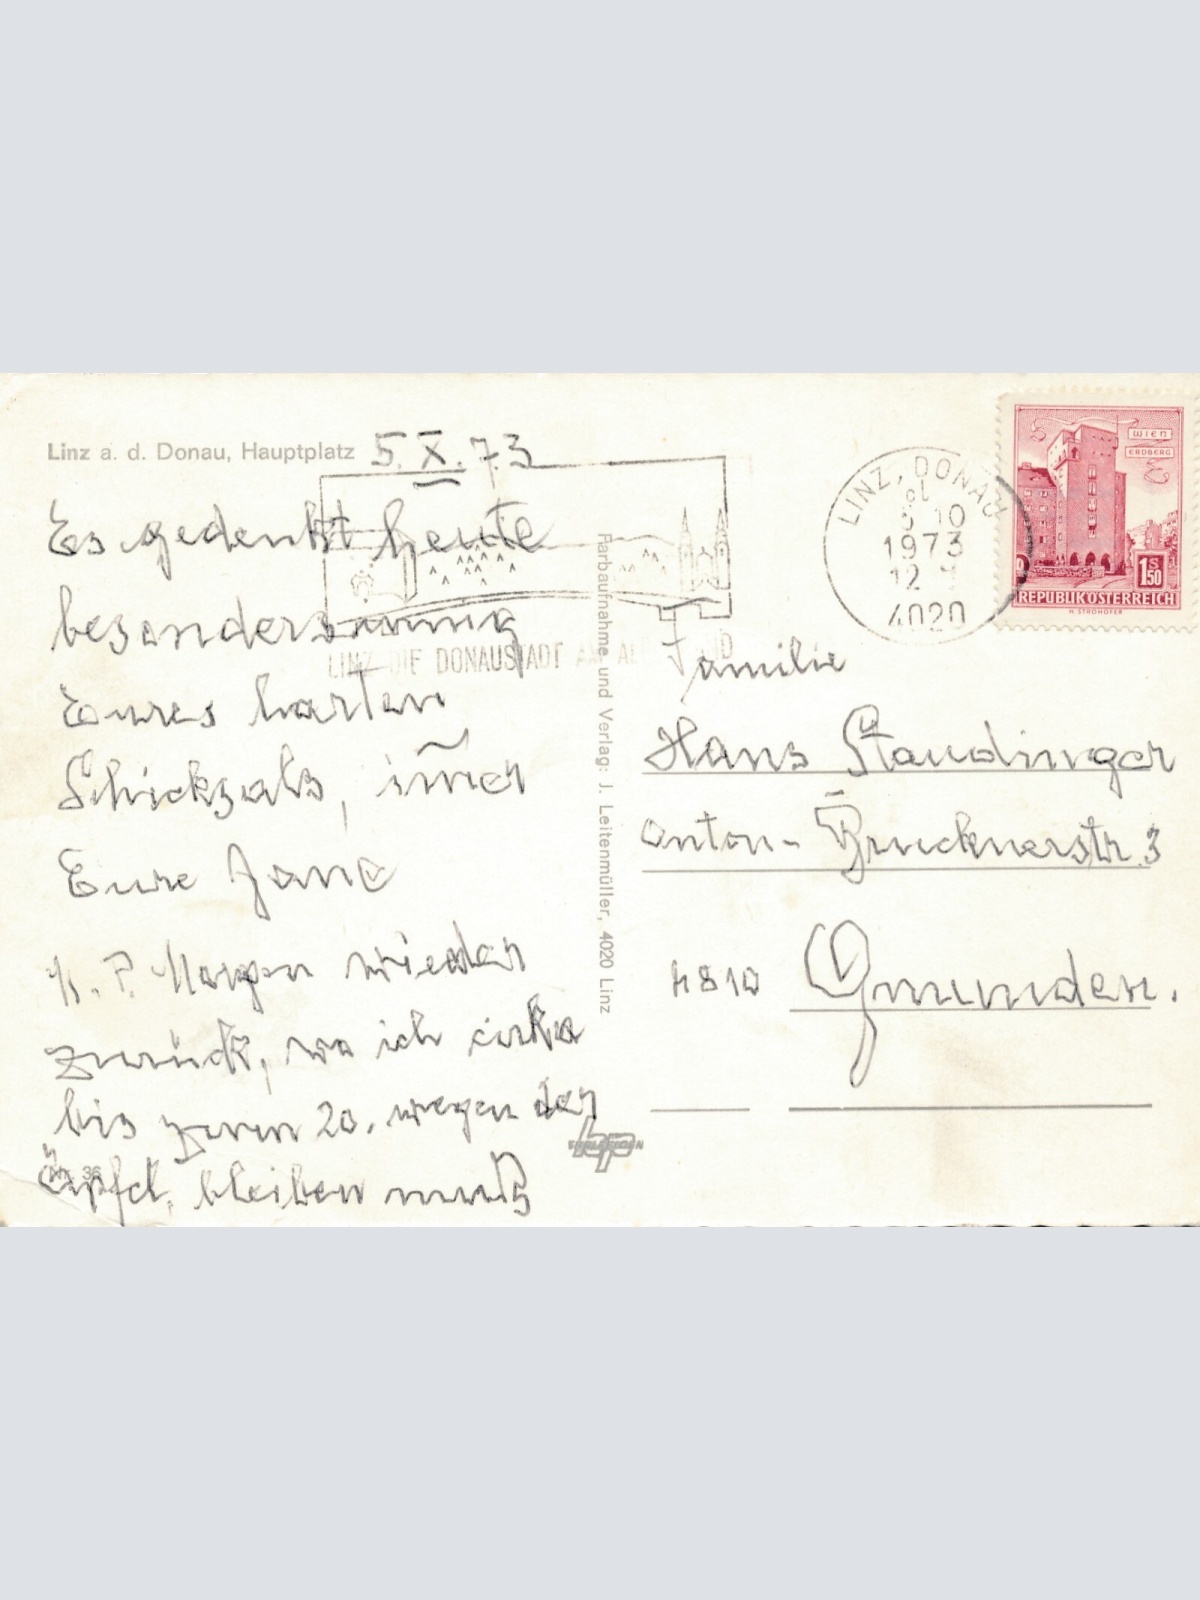 Linz a. d. Donau, Hauptplatz
5. X. 73
Es gedenkt heute
besonders
Eures harten
Schicksals, im̄er
Eure
Morgen wieder
zurück, wo ich cirka
bis zum 20. wegen der
Äpfel, bleiben muß
36
LINZ DIE DONAUSTADT
Farbaufnahme und Verlag: J. Leitenmüller, 4020 Linz
bp
LINZ, DONAU
10
1973
12
4020
WIEN
ERDBERG
1 S 50
REPUBLIK ÖSTERREICH
H. STROHOFER
Familie
Hans Staudinger
Anton-Brucknerstr. 3
4810 Gmunden.